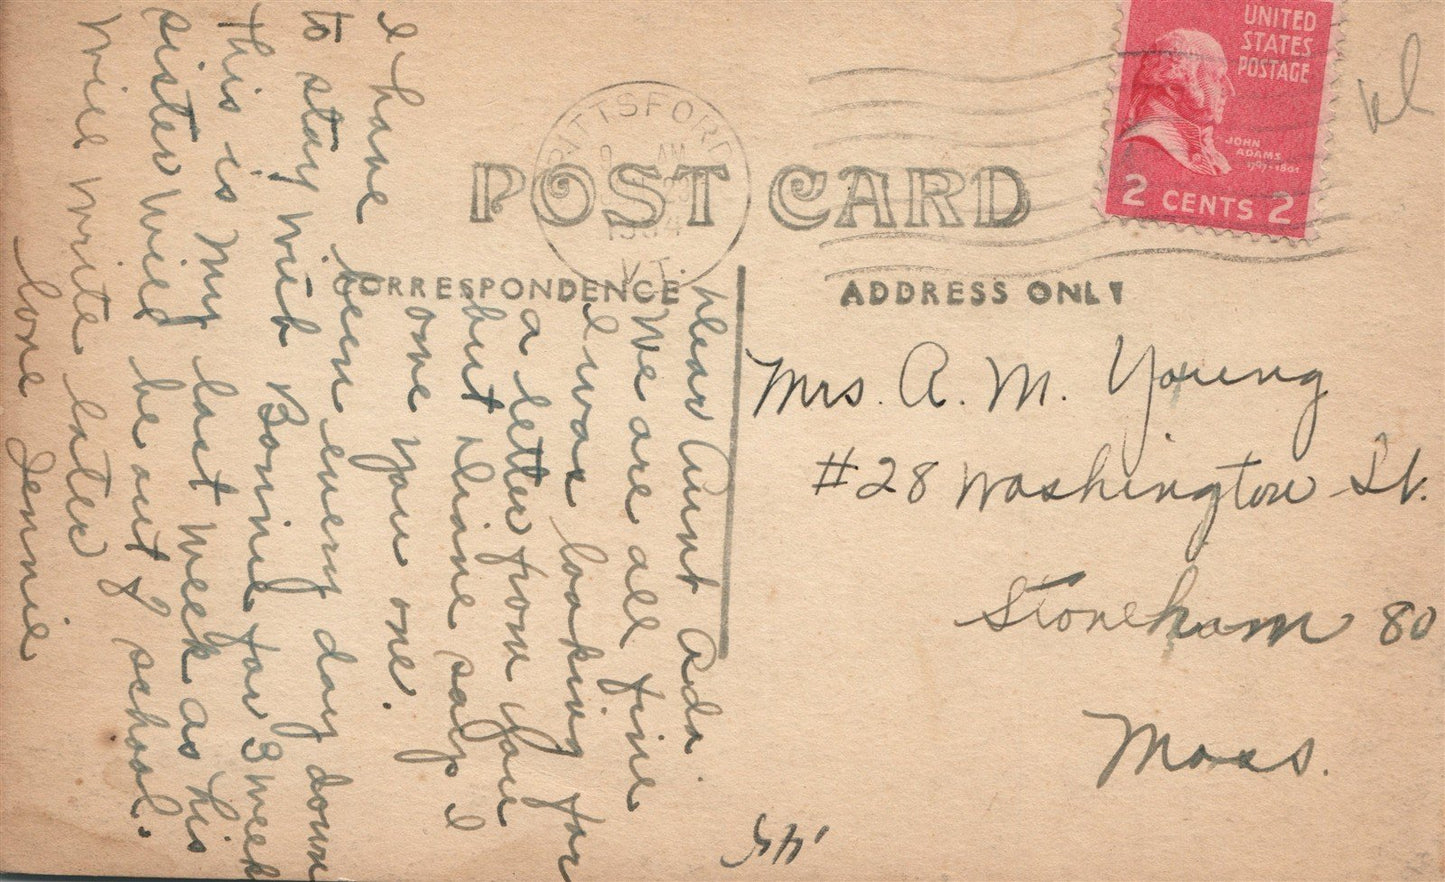 UNITED
STATES
POSTAGE
JOHN
ADAMS
1797-1801
2 CENTS 2
PITTSFORD
AM
VT.
POST CARD
CORRESPONDENCE
ADDRESS ONLY
Mrs. A. M. Young
#28 Washington St.
Stoneham 80
Mass.
Dear Aunt Ada
We are all fine
I was looking for
a letter from you
but Diane says I
owe you one.
I have been every day down
to stay with Bonnie for 3 week
this is my last week as his
sister will be out of school.
Will write later
love Jennie